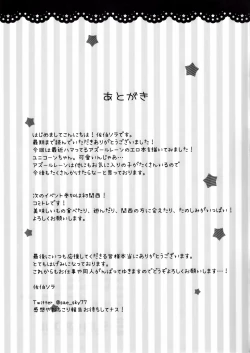 あとがき
はじめましてこんにちは！佐伯ソラです。
最期まで読んでいただきありがとうございました！
今回は最近ハマってるアズールレーンのエロ本を描いてみました！
ユニコーンちゃん。可愛いんじゃぁ…
アズールレーンは他にもお気に入りの子がたくさんいるので
今後もたくさんかけたらなーと思っております。
次のイベント参加は初関西！
コミトレです。
美味しいもの食べたり、遊んだり、関西の方に会えたり、たのしみがいっぱい！
よろしくお願いします。
最後にいつも応援してくださる皆様本当にありがとうございます。
とてもはげみになっております。
これからもお仕事や同人がんばってゆきますのでどうぞよろしくお願いします！
佐伯ソラ
Twitter @sae_sky77
感想や
こり報告お待ちしてナス！